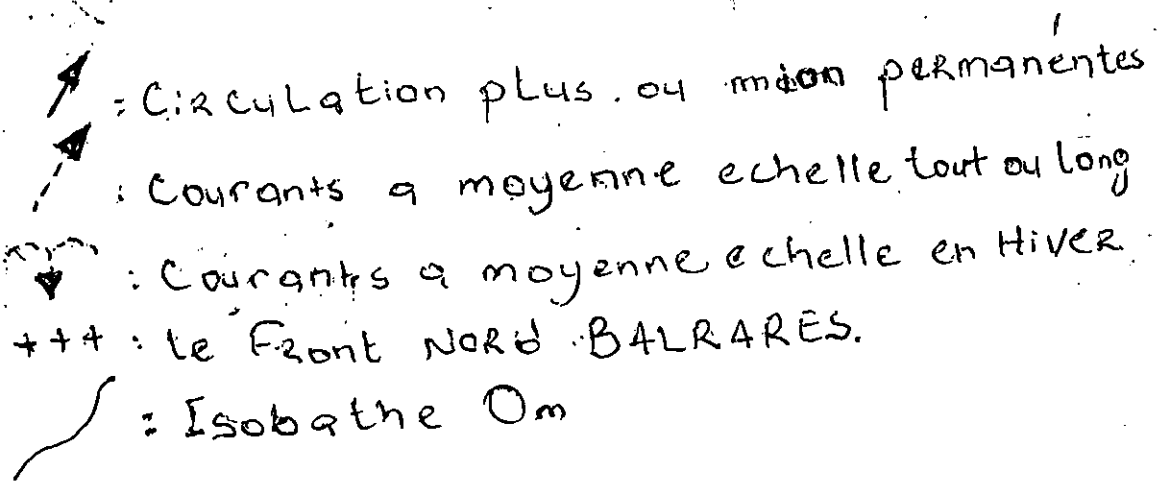 : Circulation plus ou moion permanéntes
: Courants a moyenne echelle tout ou long
: Courants a moyenne echelle en Hiver
+++ : le Front NORd BALRARES.
: Isobathe 0m